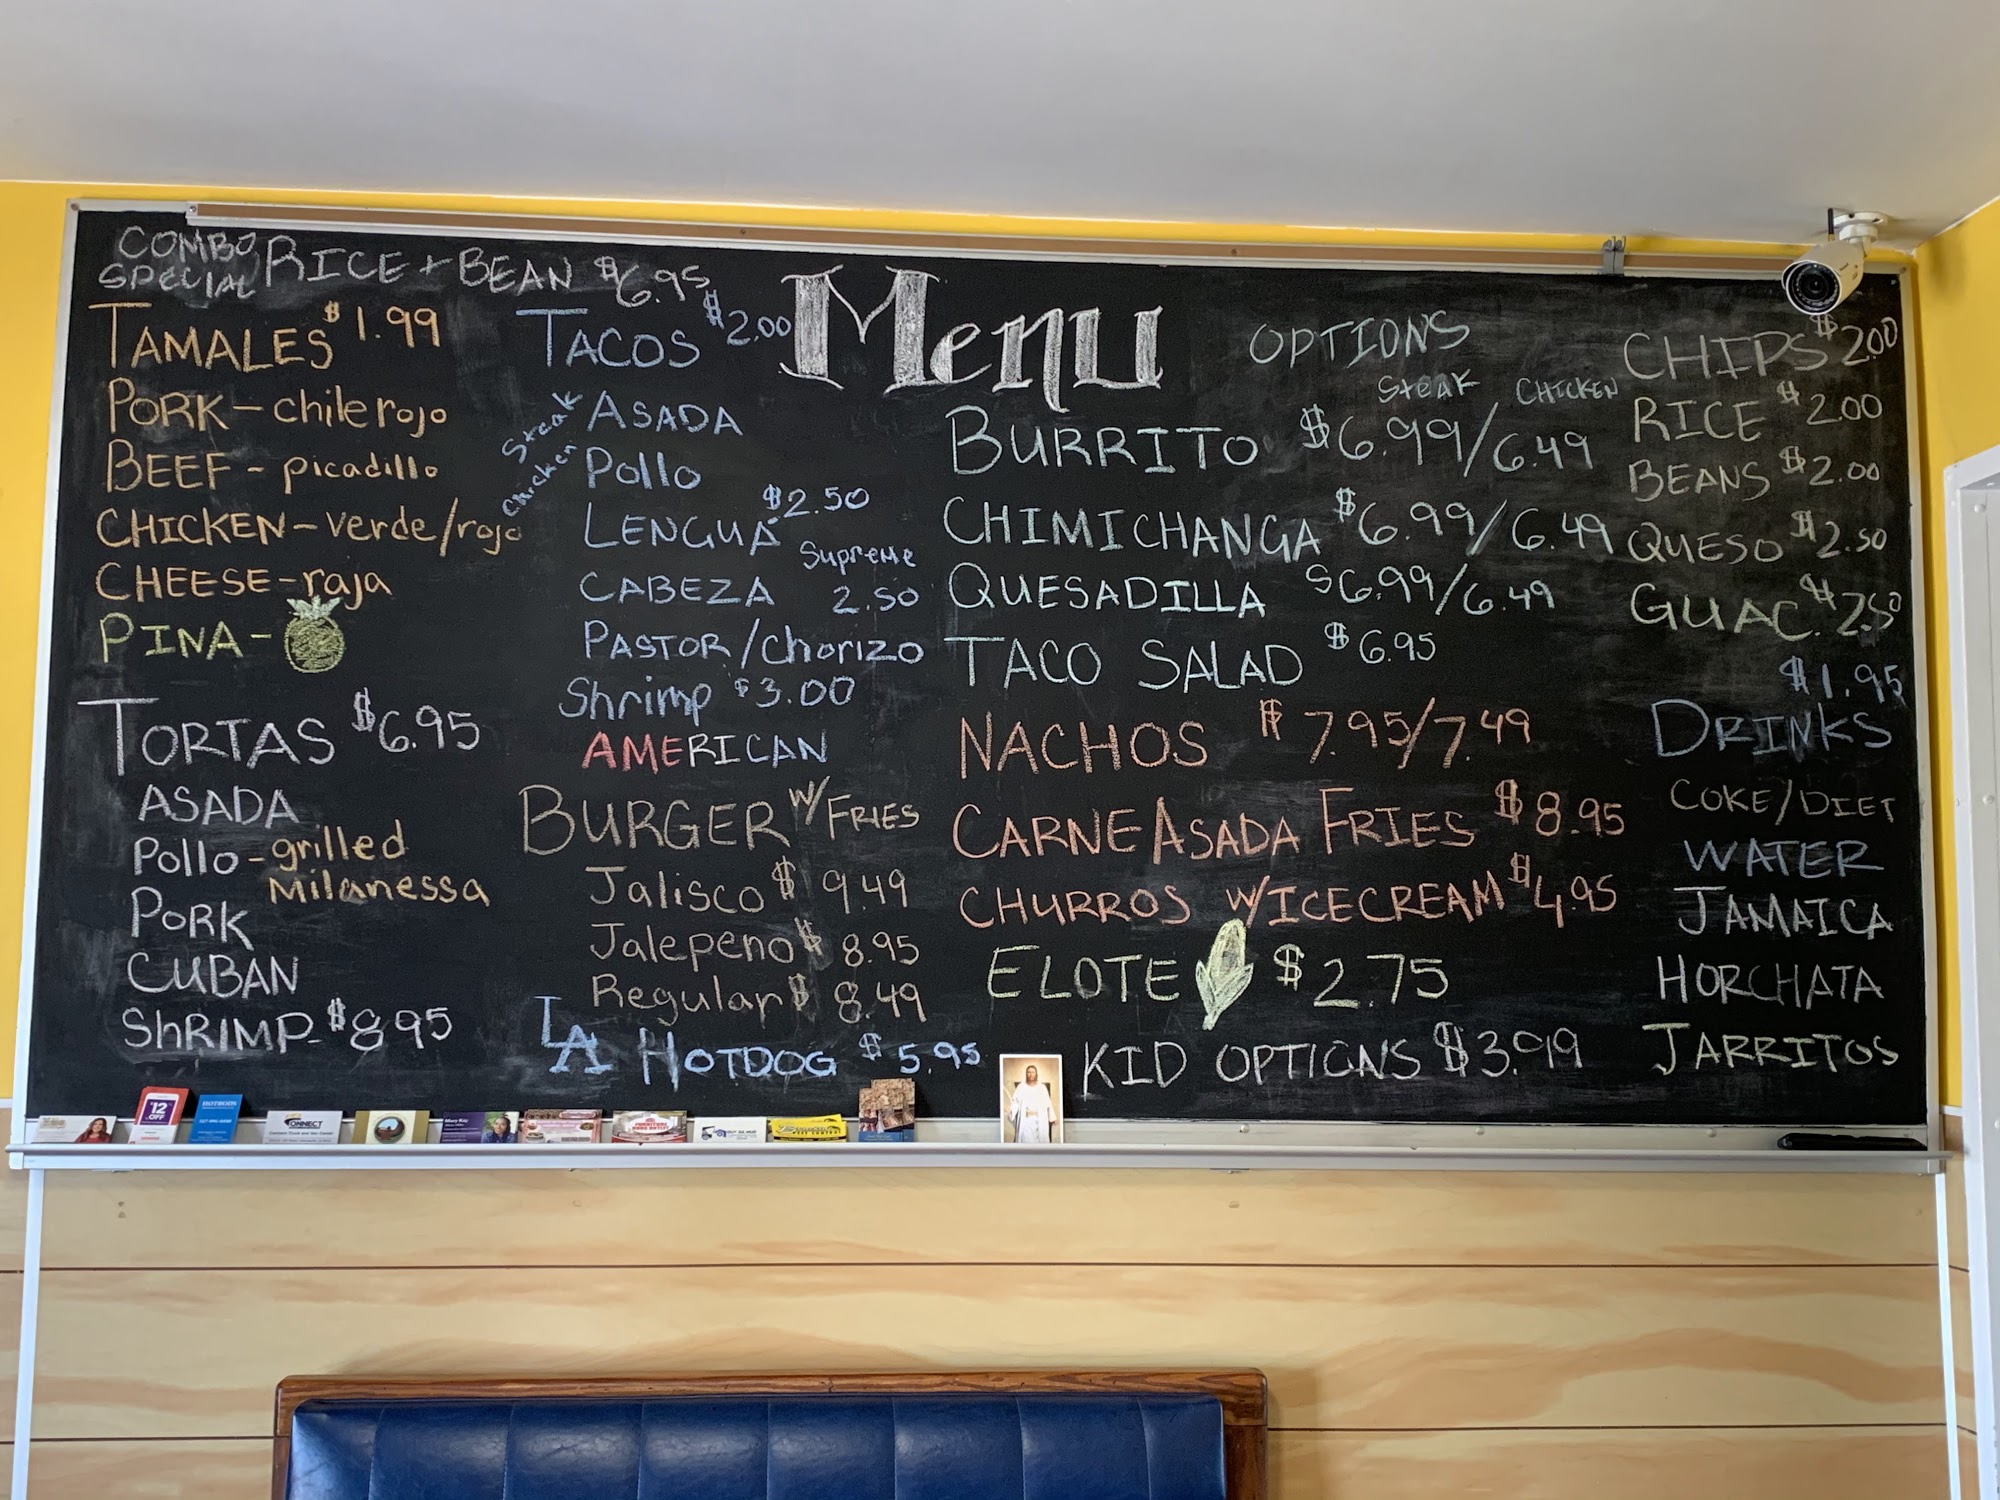 COMBO SPECIAL RICE + BEAN $6.95
TAMALES $1.99
PORK - chile rojo
BEEF - picadillo
CHICKEN - verde/rojo
CHEESE - raja
PINA -
TORTAS $6.95
ASADA
Pollo - grilled
Milanessa
PORK
CUBAN
SHRIMP - $8.95
TACOS $2.00
Steak ASADA
Chicken Pollo
LENGUA $2.50
Supreme
CABEZA 2.50
PASTOR/Chorizo
Shrimp $3.00
AMERICAN
BURGER W/ FRIES
Jalisco $9.49
Jalepeno $8.95
Regular $8.49
LA HOTDOG $5.95
Menu
OPTIONS
Steak CHICKEN
BURRITO $6.99/6.49
CHIMICHANGA $6.99/6.49
QUESADILLA $6.99/6.49
TACO SALAD $6.95
NACHOS $7.95/7.49
CARNE ASADA FRIES $8.95
CHURROS W/ICECREAM $4.95
ELOTE $2.75
KID OPTIONS $3.99
CHIPS $2.00
RICE $2.00
BEANS $2.00
QUESO $2.50
GUAC. $2.50
$1.95
DRINKS
COKE/DIET
WATER
JAMAICA
HORCHATA
JARRITOS
$12 OFF
HOTBODS
CONNECT
Mary Kay